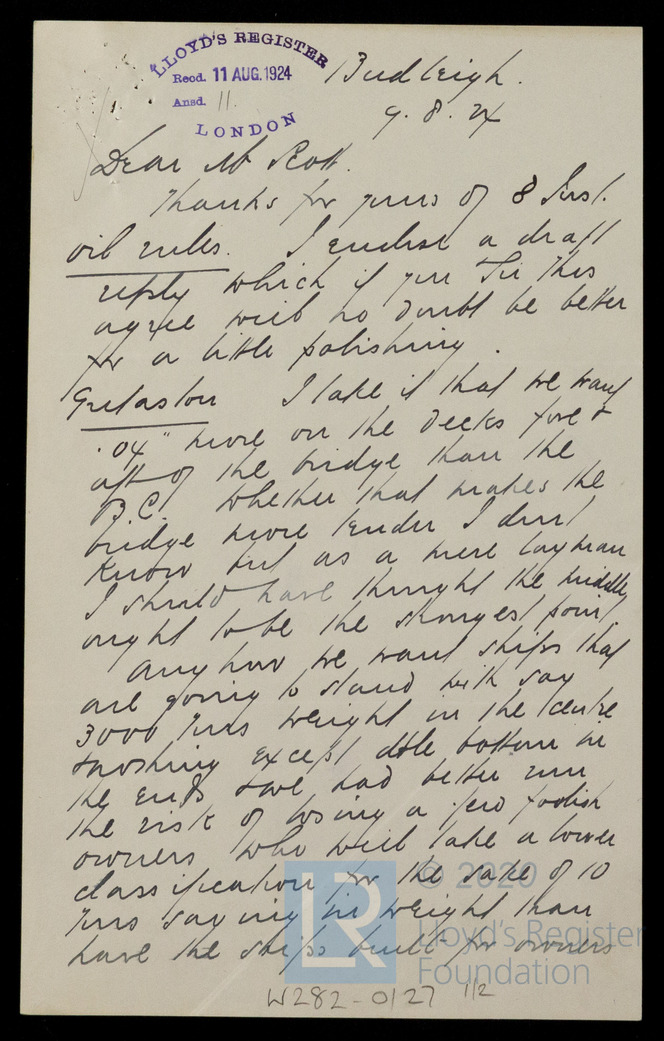 LLOYD'S REGISTER
Recd. 11 AUG. 1924
Ansd. 11.
LONDON
Budleigh.
9. 8. 24
Dear Mr Scott.
Thanks for yours of 8 Inst.
oil rules. I enclose a draft
reply which if you & Sir this
agree will no doubt be better
for a little polishing.
I take it that we want
.04" more on the decks fore &
aft of the bridge than the
B.C. whether that makes the
bridge more tender I don't
know but as a mere layman
I should have thought the middle
ought to be the strongest point.
anyhow we want ships that
are going to stand with say
3000 tons weight in the centre
& nothing except dble bottom in
the ends & we had better run
the risk of losing a few foolish
owners who will take a lower
classification for the sake of 10
tons saving in weight than
have the ships built for owners
© 2020
LR
Lloyd's Register
Foundation
W282-0127 1/2